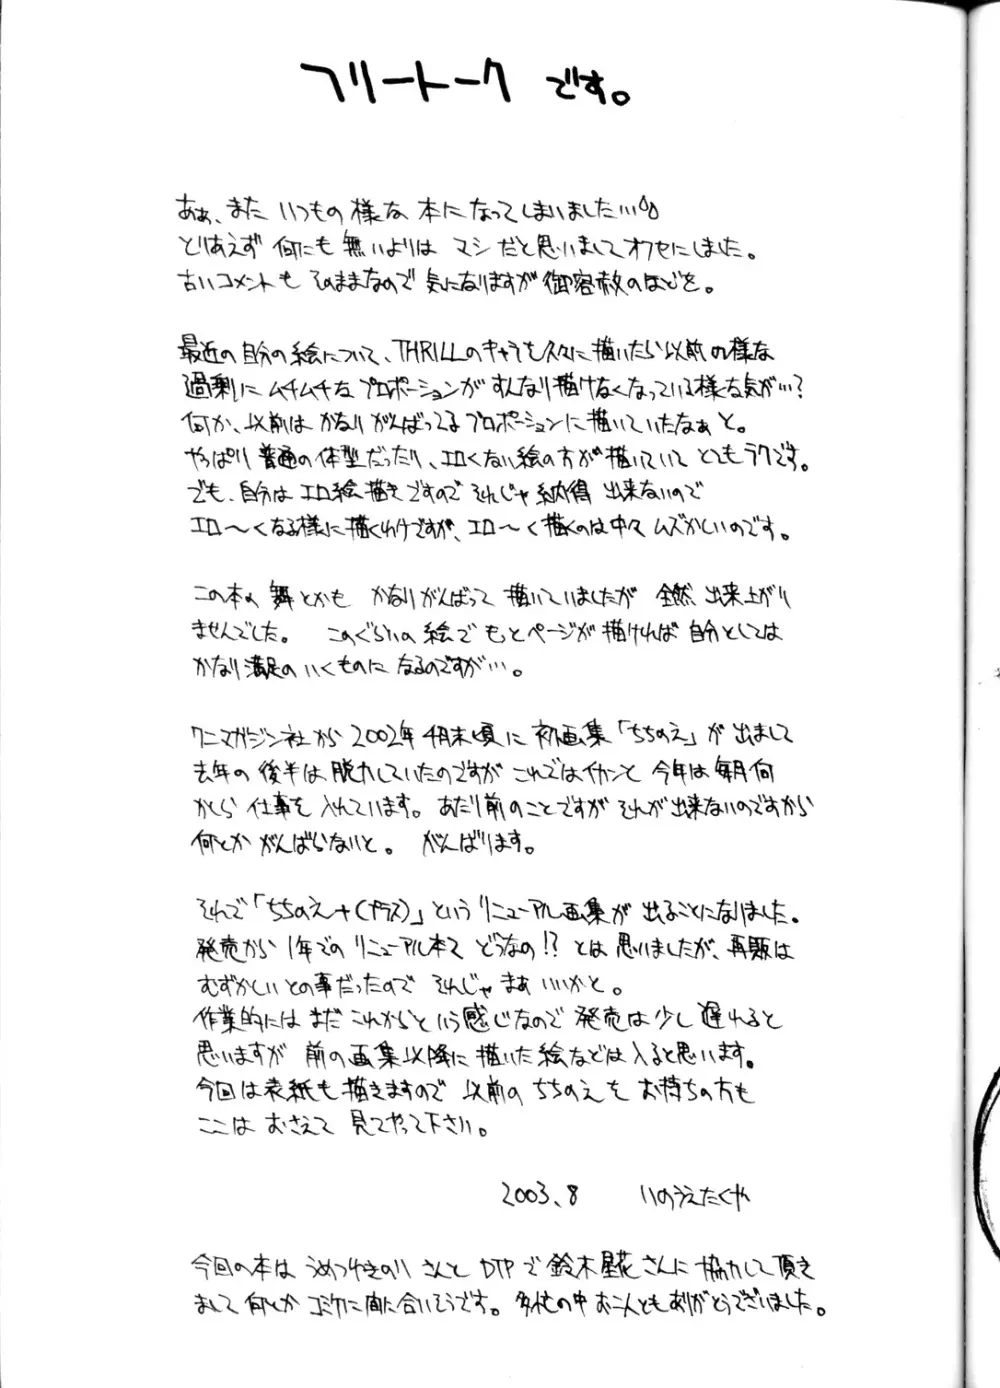 フリートークです。
あぁ、また いつもの 様な 本に なって しまいました…
とりあえず 何にも 無いよりは マシ だと思いまして オフセにしました。
古いコメントも そのままなので 気になりますが 御容赦のほどを。
最近の自分の絵について、THRILLのキャラを久々に描いたら以前の様な
過剰に ムチムチな プロポーションが すんなり描けなくなっている様な気が…?
何か、以前は かなりがんばってるプロポーションに描いていたなぁ と。
やっぱり 普通の体型だったり、エロくない絵の方が描いていて とてもラクです。
でも、自分は エロ絵描きですので それじゃ 納得 出来ないので
エロ〜くなる様に描くわけですが、エロ〜く描くのは中々 ムズかしいのです。
この本の 舞とかも かなりがんばって 描いていましたが 全然 出来上がり
ませんでした。 このぐらいの 絵で もっとページが描ければ 自分としては
かなり満足の いくものに なるのですが…。
ワニマガジン社から 2002年 4月末頃に 初画集「ちちのえ」が 出まして
去年の 後半は 脱力していたのですが これではイカンと 今年は 毎月 何
かしら 仕事を 入れています。あたり前のことですが それが出来ないのですから
何とか がんばらないと。 がんばります。
それで「ちちのえ+(プラス)」という リニューアル画集が 出ることになりました。
発売から 1年での リニューアル本て どうなの!? とは 思いましたが、再販は
むずかしい との事だったので それじゃ まぁ いいかと。
作業的には まだ これからと いう感じなので 発売は 少し 遅れると
思いますが 前の画集以降に 描いた絵などは 入ると思います。
今回は 表紙も 描きますので 以前の ちちのえを お持ちの方も
ここは おさえて 見てやって下さい。
2003.8 いのうえたくや
今回の本は うめつゆきのり さんと DTPで 鈴木星花さんに 協力して 頂き
まして 何とか コミケに 間に合いそうです。多忙の中 お二人とも ありがとうございました。